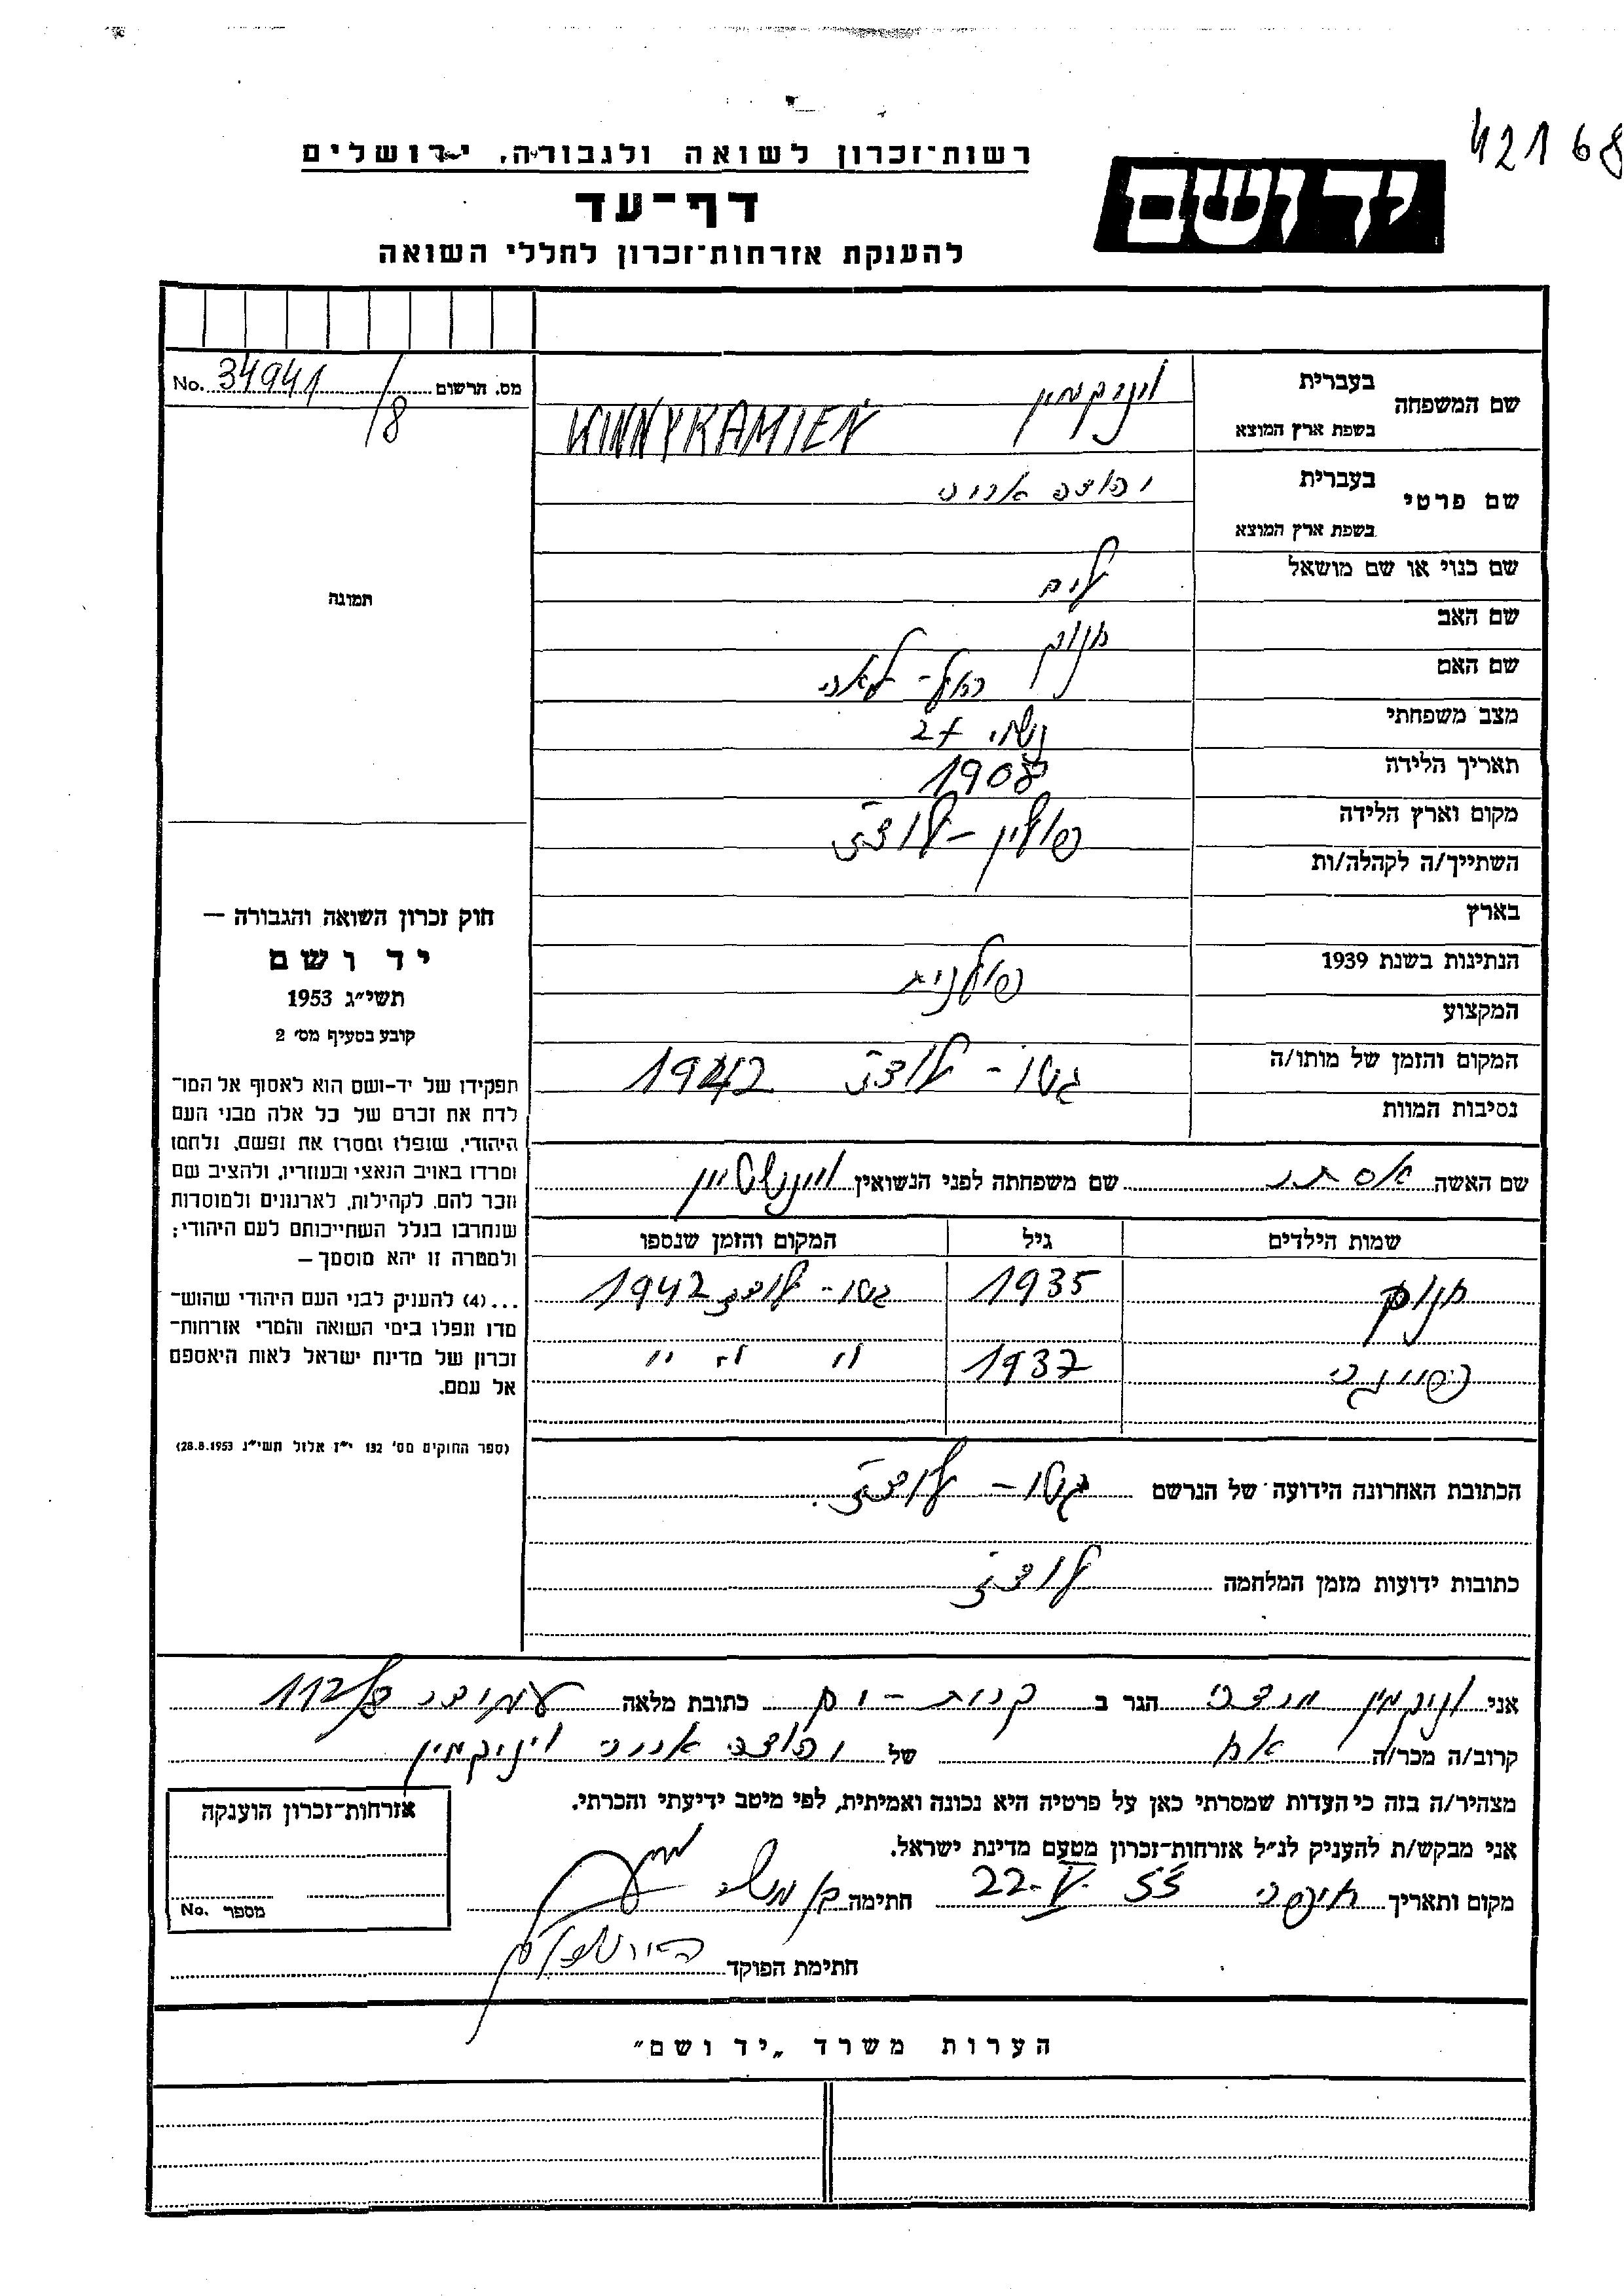 42168
רשות־זכרון לשואה ולגבורה, ירושלים
יד ושם
דף־עד
להענקת אזרחות־זכרון לחללי השואה
No. 34941/8 מס. תרשום
שם המשפחה
בעברית ויניקמין
בשפת ארץ המוצא WINNYKAMIEN
שם פרטי
בעברית
בשפת ארץ המוצא
שם כנוי או שם מושאל
שם האב
שם האם רחל-לאה
מצב משפחתי נשוי +2
תאריך הלידה 1908
מקום וארץ הלידה פולין - לודז'
השתייך/ה לקהלה/ות
בארץ
הנתינות בשנת 1939 פולנית
המקצוע
המקום והזמן של מותו/ה גטו - לודז' 1942
נסיבות המוות
שם האשה אסתר שם משפחתה לפני הנשואין
שמות הילדים גיל המקום והזמן שנספו
1935 גטו - לודז 1942
1937 " " "
הכתובת האחרונה הידועה של הנרשם גטו - לודז'
כתובות ידועות מזמן המלחמה לודז'
תמונה
חוק זכרון השואה והגבורה —
יד ושם
תשי״ג 1953
קובע בסעיף מס׳ 2
תפקידו של יד-ושם הוא לאסוף אל המו־
לדת את זכרם של כל אלה מבני העם
היהודי, שנפלו ומסרו את נפשם, נלחמו
ומרדו באויב הנאצי ובעוזריו, ולהציב שם
וזכר להם, לקהילות, לארגונים ולמוסדות
שנחרבו בגלל השתייכותם לעם היהודי;
ולמטרה זו יהא מוסמך —
...(4) להעניק לבני העם היהודי שהוש־
מדו ונפלו בימי השואה והמרי אזרחות־
זכרון של מדינת ישראל לאות היאספם
אל עמם.
(ספר החוקים מס׳ 132 י״ז אלול תשי״ג 28.8.1953)
אני ויניקמין מרדכי הגר ב קרית - ים כתובת מלאה 112/8
קרוב/ה מכר/ה אח של ויניקמין
מצהיר/ה בזה כי העדות שמסרתי כאן על פרטיה היא נכונה ואמיתית, לפי מיטב ידיעתי והכרתי.
אני מבקש/ת להעניק לנ״ל אזרחות־זכרון מטעם מדינת ישראל.
מקום ותאריך חיפה 22-V-55 חתימה
חתימת הפוקד
אזרחות־זכרון הוענקה
No. מספר
הערות משרד „יד ושם"